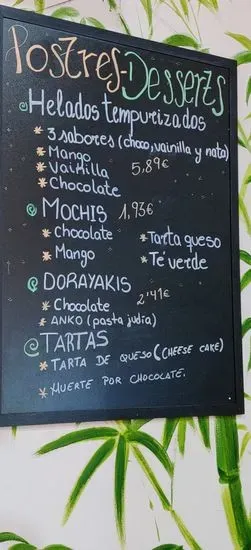 Postres-Desserts
Helados tempurizados
* 3 sabores (choco, vainilla y nata)
* Mango
* Vainilla 5,89€
* Chocolate
Mochis 1,93€
* Chocolate * Tarta queso
* Mango * Té verde
DORAYAKIS
* Chocolate 2'41€
* ANKO (pasta judía)
TARTAS
* TARTA DE QUESO (CHEESE CAKE)
* MUERTE POR CHOCOLATE.